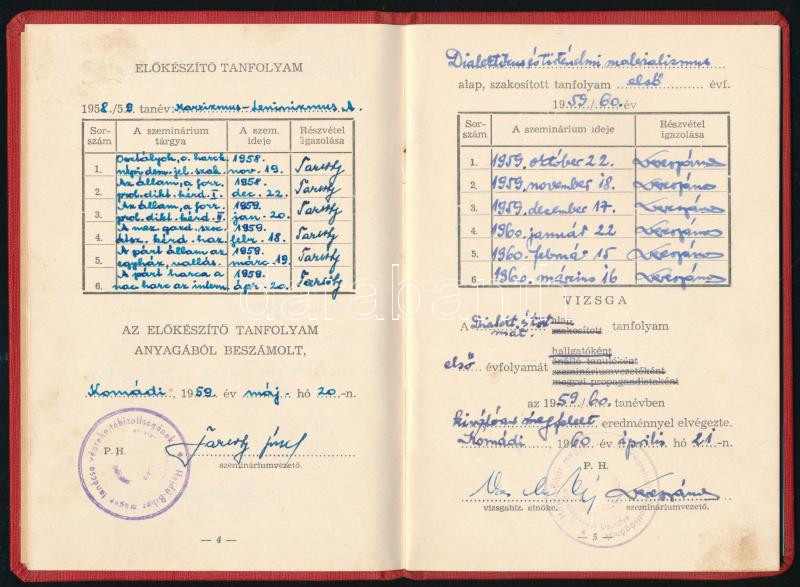 ELŐKÉSZÍTŐ TANFOLYAM
1958/59. tanév: Marxizmus-Leninizmus A.
Sor-szám A szeminárium tárgya A szem. ideje Részvétel igazolása
1. Osztályok, o. harck. népi dem. jel. szak. 1958. nov. 19.
2. Az állam, a forr. prol. dikt. kérd. I. 1958. dec. 22.
3. Az állam, a forr. prol. dikt. kérd. II. 1959. jan. 20.
4. A mez. gazd. szoc. átsz. kérd. haz. 1959. febr. 18.
5. A párt állam az egyház, vallás. 1959. márc. 19.
6. A párt harca a nac. harc az intern. 1959. ápr. 20.
AZ ELŐKÉSZÍTŐ TANFOLYAM
ANYAGÁBÓL BESZÁMOLT,
Komádi, 1959. év máj. hó 20.-n.
P. H.
József
szemináriumvezető.
— 4 —
Dialektikus és történelmi materializmus
alap, szakosított tanfolyam első évf.
1959./60. év
Sor-szám A szeminárium ideje Részvétel igazolása
1. 1959. október 22.
2. 1959. november 18.
3. 1959. december 17.
4. 1960. január 22
5. 1960. február 15
6. 1960. március 16
VIZSGA
A Dialekt. és tört. mat. alap szakosított tanfolyam
hallgatóként
első évfolyamát önálló tanulóként
szemináriumvezetőként
megyei propagandistaként
az 1959./60. tanévben
kiválóan megfelelt eredménnyel elvégezte.
Komádi, 1960 év április hó 21.-n.
P. H.
vizsgabiz. elnöke. szemináriumvezető.
— 5 —
darabanth